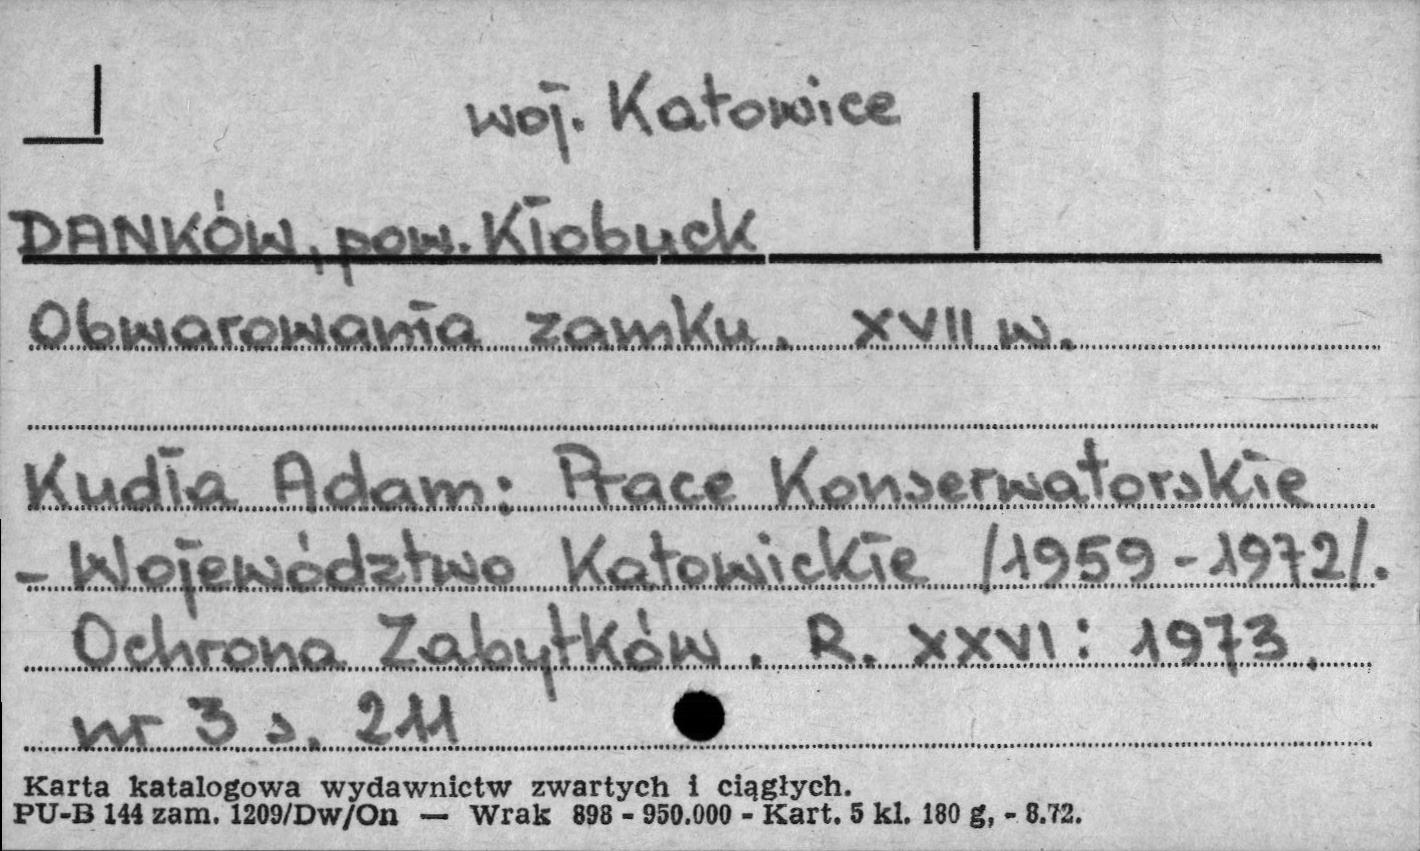 woj. Katowice
DANKÓW, pow. Kłobuck
Obwarowania zamku. XVII w.
Kudła Adam: Prace Konserwatorskie
- Województwo Katowickie /1959-1972/.
Ochrona Zabytków. R. XXVI: 1973.
nr 3 s. 211
Karta katalogowa wydawnictw zwartych i ciągłych.
PU-B 144 zam. 1209/Dw/On — Wrak 898 - 950.000 - Kart. 5 kl. 180 g, - 8.72.